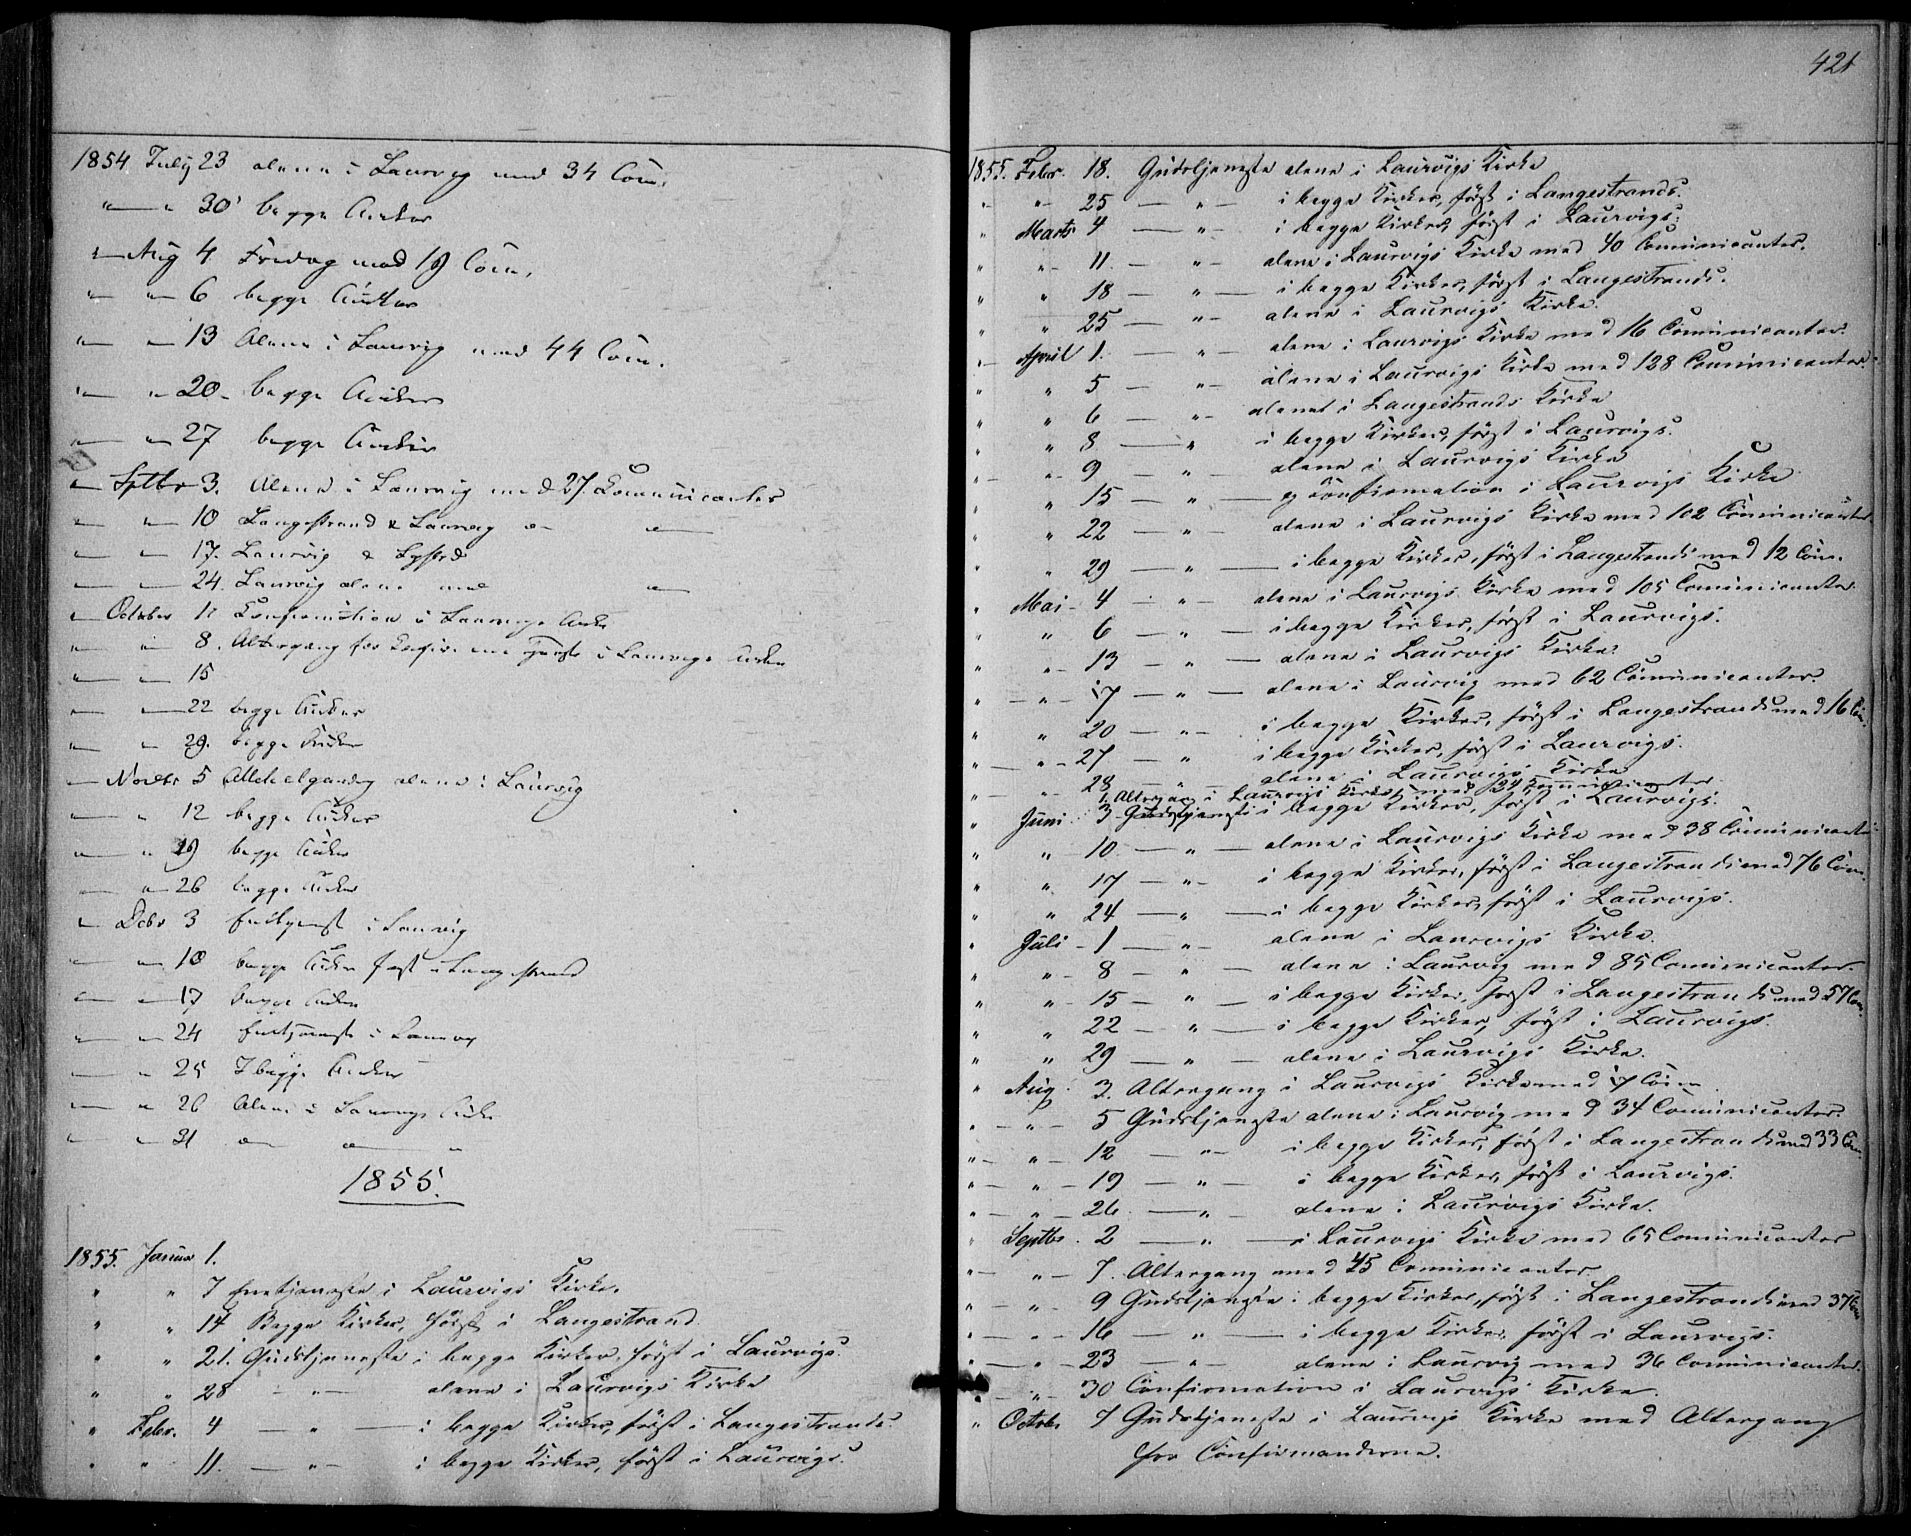 1854 July 23 alene i Laurvig med 34 Com.
" — " 30 begge Kirker
" — Aug 4 Fredag med 19 Com.
" — " 6 begge Kirker
" — " 13 Alene i Laurvig med 44 Com.
" — " 20 - begge Kirker
" — " 27 begge Kirker
" — Septbr 3. Alene i Laurvig med 27. Communicanter
" — " 10 Langestrand & Laurvig
" — " 17. Laurvig &
" — " 24. Laurvig alene med
" — October 1 Confirmation i Laurvigs Kirke
" — " 8. Altergang for i Laurvigs Kirke
" — " 15
" — " 22 begge Kirker
" — " 29. begge Kirker
— Novbr 5 Allehelgensdag alene i Laurvig
" — " 12 begge Kirker
" — " 19 begge Kirker
" — " 26 begge Kirker
" — Decbr 3 i Laurvig
" — " 10 begge Kirker først i Langestrand
" — " 17 begge Kirker
" — " 24 i Laurvig
" — " 25 I begge Kirker
" — " 26 Alene i Laurvigs Kirke
" — " 31 " — "
1855.
1855. Januar 1.
" " 7 Enetjeneste i Laurvigs Kirke.
" " 14 Begge Kirker, først i Langestrand
" " 21. Gudstjeneste i begge Kirker, først i Laurvigs.
" " 28 — " — alene i Laurvigs Kirke
" Febr. 4 — " — i begge Kirker, først i Langestrands.
" " 11. — " — i begge Kirker, først i Laurvigs.
421
1855. Febr. 18. Gudstjeneste alene i Laurvigs Kirke
" " 25 — " — i begge Kirker, først i Langestrands.
" Marts 4 — " — i begge Kirker, først i Laurvigs.
" " 11. — " — alene i Laurvigs Kirke med 40 Communicanter.
" " 18 — " — i begge Kirker, først i Langestrands.
" " 25 — " — alene i Laurvigs Kirke.
" April 1. — " — alene i Laurvigs Kirke med 16 Communicanter.
" " 5 — " — alene i Laurvigs Kirke med 128 Communicanter.
" " 6 — " — alene i Langestrands Kirke
" " 8 — " — i begge Kirker, først i Laurvigs.
" " 9 — " — alene i Laurvigs Kirke
" " 15 — " — og Confirmation i Laurvigs Kirke
" " 22 — " — alene i Laurvigs Kirke med 102 Communicanter.
" " 29 — " — i begge Kirker, først i Langestrands med 12 Com.
" Mai 4 — " — alene i Laurvigs Kirke med 105 Communicanter.
" " 6 — " — i begge Kirker, først i Laurvigs.
" " 13 — " — alene i Laurvigs Kirke.
" " 17 — " — alene i Laurvig med 62 Communicanter.
" " 20 — " — i begge Kirker, først i Langestrands med 16 Com.
" " 27 — " — i begge Kirker, først i Laurvigs.
" " 28 — " — alene i Laurvigs Kirke
1 Altergang i Laurvigs Kirke med 32 Communicanter.
" Juni 3 Gudstjeneste i begge Kirker, først i Laurvigs.
" " 10 — " — alene i Laurvigs Kirke med 38 Communicanter
" " 17 — " — i begge Kirker, først i Langestrands med 76 Com.
" " 24 — " — i begge Kirker, først i Laurvigs.
" Juli 1 — " — alene i Laurvigs Kirke.
" " 8 — " — alene i Laurvig med 85 Communicanter.
" " 15 — " — i begge Kirker, først i Langestrands med 57 Com.
" " 22 — " — i begge Kirker, først i Laurvigs.
" " 29 — " — alene i Laurvigs Kirke.
" Aug 3. Altergang i Laurvigs Kirke med 17 Com
" " 5 Gudstjeneste alene i Laurvig med 34 Communicanter.
" " 12 — " — i begge Kirker, først i Langestrands med 33 Com.
" " 19 — " — i begge Kirker, først i Laurvigs.
" " 26 — " — alene i Laurvigs Kirke.
" Septbr. 2 — " — i Laurvigs Kirke med 65 Communicanter
" " 7. Altergang med 45 Communicanter
" " 9 Gudstjeneste i begge Kirker, først i Langestrands med 37 Com
" " 16 — " — i begge Kirker, først i Laurvigs.
" " 23 — " — alene i Laurvig med 36 Communicanter.
" " 30 Confirmation i Laurvigs Kirke.
" Octob. 7 Gudstjeneste i Laurvigs Kirke med Altergang
for Confirmanderne.